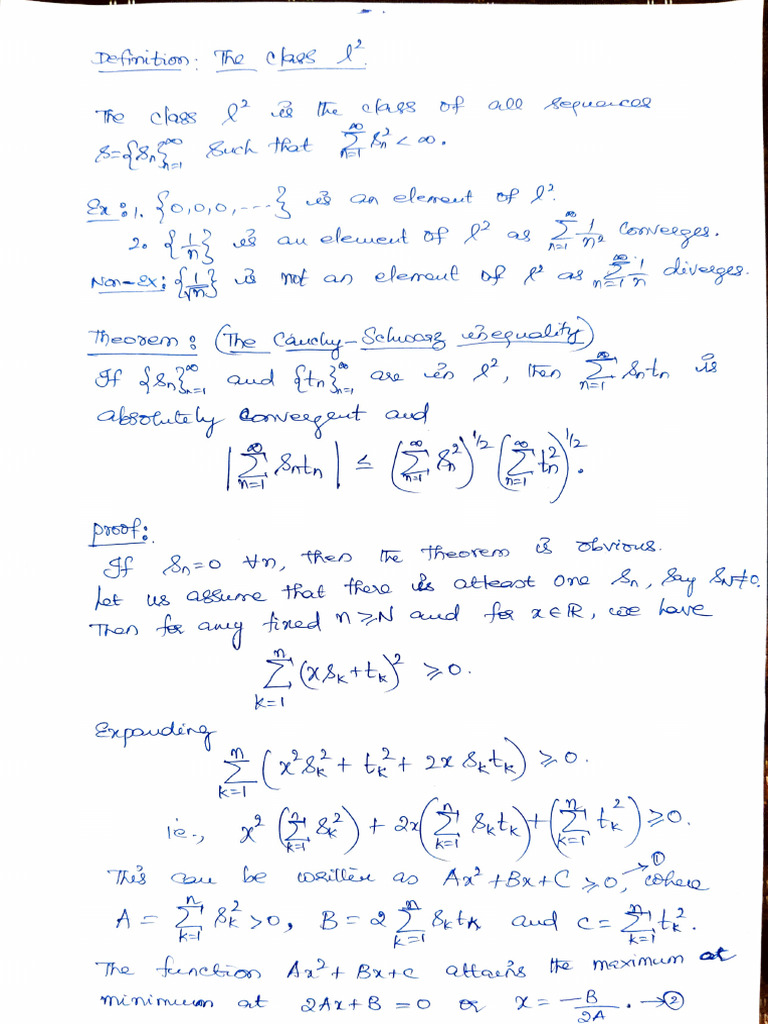 Definition: The class l².
The class l² is the class of all sequences
s={sₙ}ₙ₌₁^∞ such that ∑ₙ₌₁^∞ sₙ² < ∞.
Ex: 1. {0,0,0,----} is an element of l².
2. {1/n} is an element of l² as ∑ₙ₌₁^∞ 1/n² converges.
Non-Ex: {1/√n} is not an element of l² as ∑ₙ₌₁^∞ 1/n diverges.
Theorem: (The Cauchy-Schwarz inequality)
If {sₙ}ₙ₌₁^∞ and {tₙ}ₙ₌₁^∞ are in l², then ∑ₙ₌₁^∞ sₙtₙ is
absolutely convergent and
|∑ₙ₌₁^∞ sₙtₙ| ≤ (∑ₙ₌₁^∞ sₙ²)^1/2 (∑ₙ₌₁^∞ tₙ²)^1/2.
Proof:
If sₙ=0 ∀n, then the theorem is obvious.
Let us assume that there is atleast one sₙ, say s_N≠0.
Then for any fixed n≥N and for x∈ℝ, we have
∑ₖ₌₁ⁿ (xsₖ+tₖ)² ≥0.
Expanding
∑ₖ₌₁ⁿ (x²sₖ² + tₖ² + 2x sₖtₖ) ≥0.
ie., x² (∑ₖ₌₁ⁿ sₖ²) + 2x(∑ₖ₌₁ⁿ sₖtₖ)+(∑ₖ₌₁ⁿ tₖ²) ≥0.
This can be written as Ax²+Bx+C ≥0, →① where
A = ∑ₖ₌₁ⁿ sₖ²>0, B=2 ∑ₖ₌₁ⁿ sₖtₖ and C= ∑ₖ₌₁ⁿ tₖ².
The function Ax²+Bx+C attains the maximum at
minimum at 2Ax+B=0 or x= -B/2A. →②